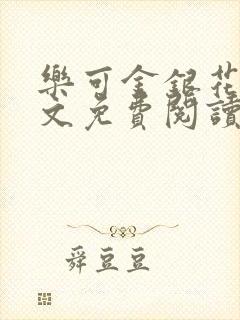 樂可金銀花
文免費閱讀
舜豆豆